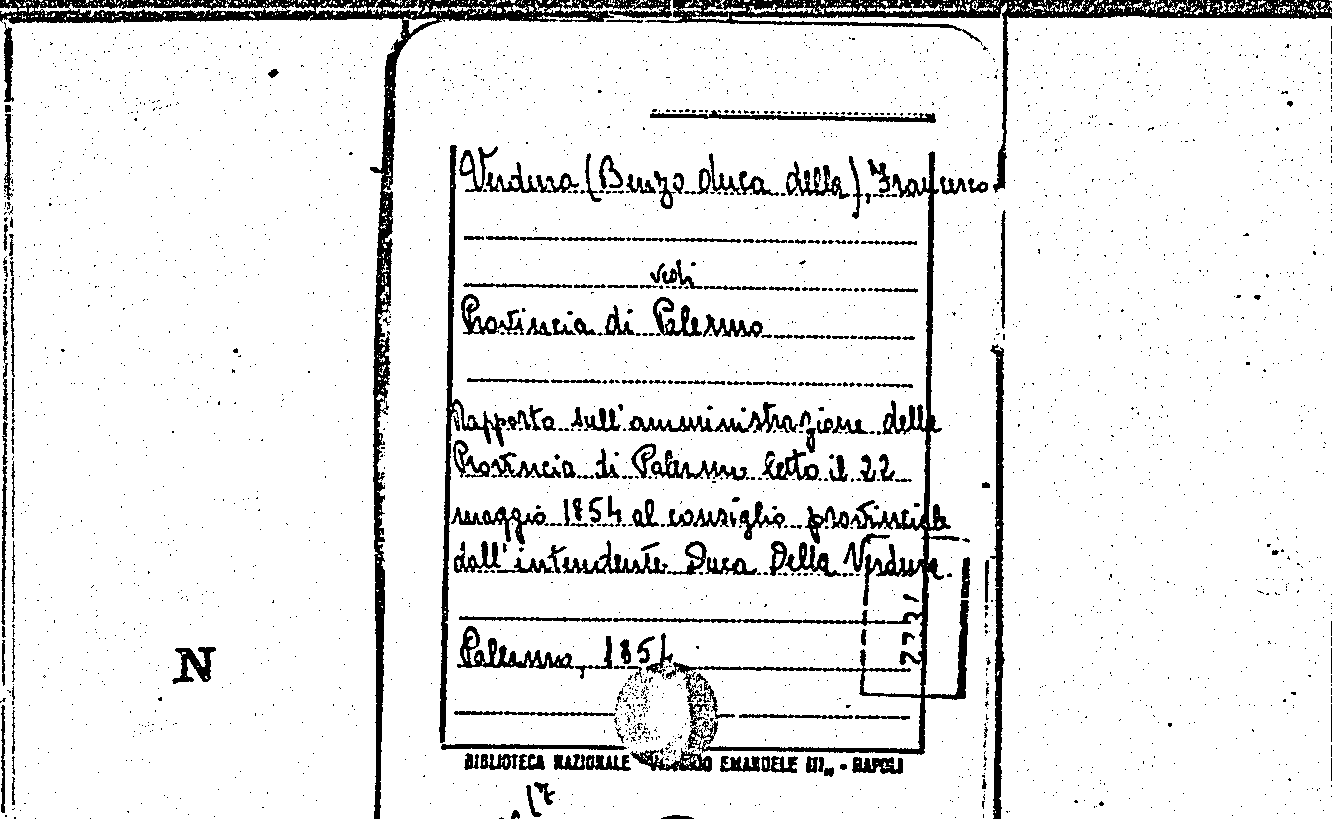 Verdura (Benzo duca della), Francesco
vedi
Provincia di Palermo
Rapporto sull'amministrazione della
Provincia di Palermo letto il 22
maggio 1854 al consiglio provinciale
dall'intendente Duca Della Verdura.
Palermo, 1854
BIBLIOTECA NAZIONALE EMANUELE III„ - NAPOLI
N